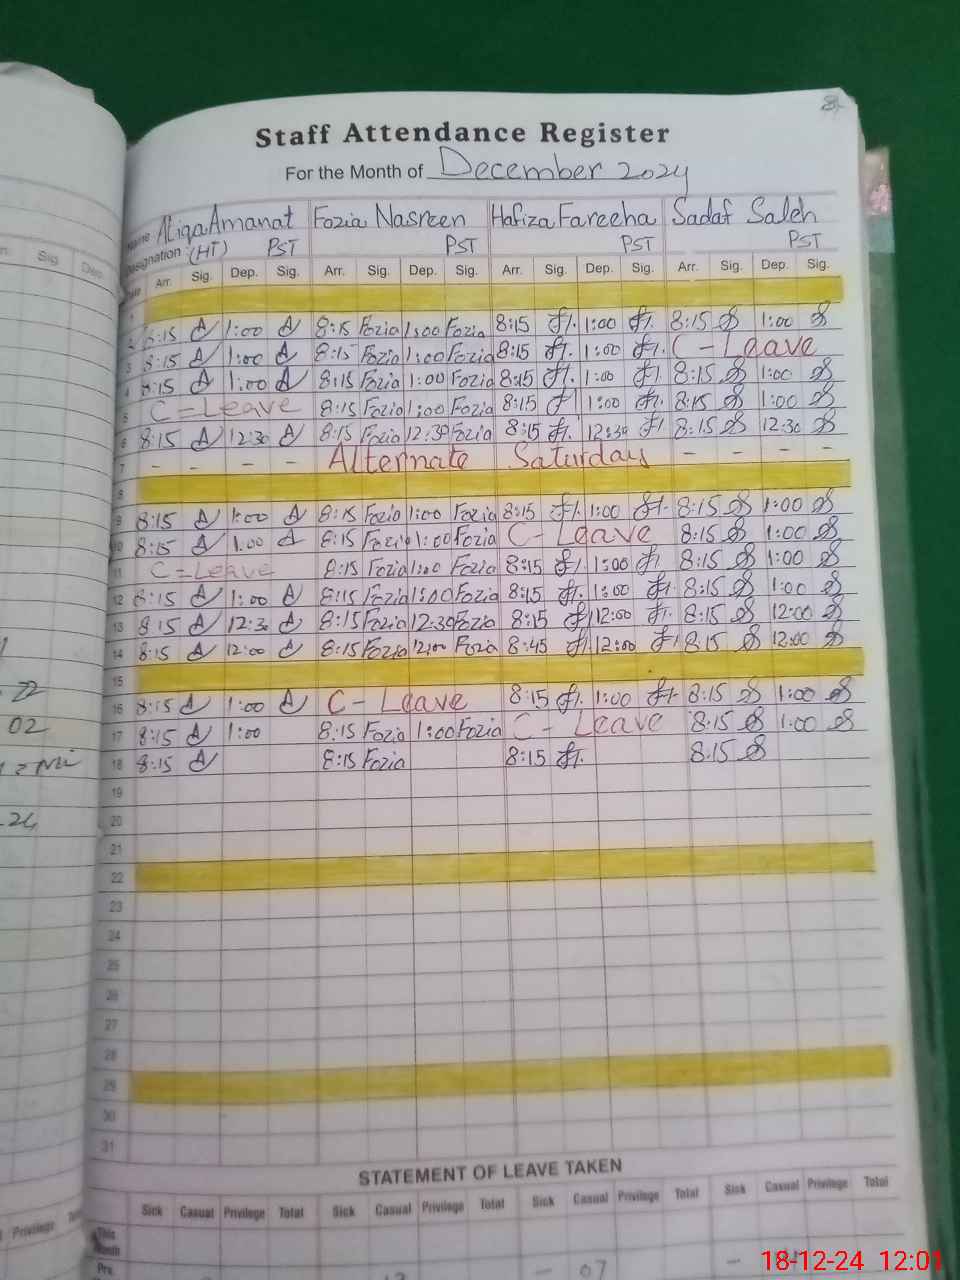 8
Staff Attendance Register
For the Month of December 2024
Name Atiqa Amanat Fozia Nasreen Hafiza Fareeha Sadaf Saleh
Designation (HT) PST PST PST PST
Date Arr. Sig. Dep. Sig. Arr. Sig. Dep. Sig. Arr. Sig. Dep. Sig. Arr. Sig. Dep. Sig.
1
2 8:15 A 1:00 A 8:15 Fozia 1:00 Fozia 8:15 1:00 8:15 1:00
3 8:15 A 1:00 A 8:15 Fozia 1:00 Fozia 8:15 1:00 C - Leave
4 8:15 A 1:00 A 8:15 Fozia 1:00 Fozia 8:15 1:00 8:15 1:00
5 C = Leave 8:15 Fozia 1:00 Fozia 8:15 1:00 8:15 1:00
6 8:15 A 12:30 A 8:15 Fozia 12:30 Fozia 8:15 12:30 8:15 12:30
7 - - - - Alternate Saturday - - - -
8
9 8:15 A 1:00 A 8:15 Fozia 1:00 Fozia 8:15 1:00 8:15 1:00
10 8:15 A 1:00 A 8:15 Fozia 1:00 Fozia C - Leave 8:15 1:00
11 C = Leave 8:15 Fozia 1:00 Fozia 8:15 1:00 8:15 1:00
12 8:15 A 1:00 A 8:15 Fozia 1:00 Fozia 8:15 1:00 8:15 1:00
13 8:15 A 12:30 A 8:15 Fozia 12:30 Fozia 8:15 12:00 8:15 12:00
14 8:15 A 12:00 A 8:15 Fozia 12:00 Fozia 8:45 12:00 8:15 12:00
15
16 8:15 A 1:00 A C - Leave 8:15 1:00 8:15 1:00
17 8:15 A 1:00 8:15 Fozia 1:00 Fozia C - Leave 8:15 1:00
18 8:15 A 8:15 Fozia 8:15 8:15
19
20
21
22
23
24
25
26
27
28
29
30
31
STATEMENT OF LEAVE TAKEN
Sick Casual Privilege Total Sick Casual Privilege Total Sick Casual Privilege Total Sick Casual Privilege Total
This Month
Pre - 07 -
18-12-24 12:01